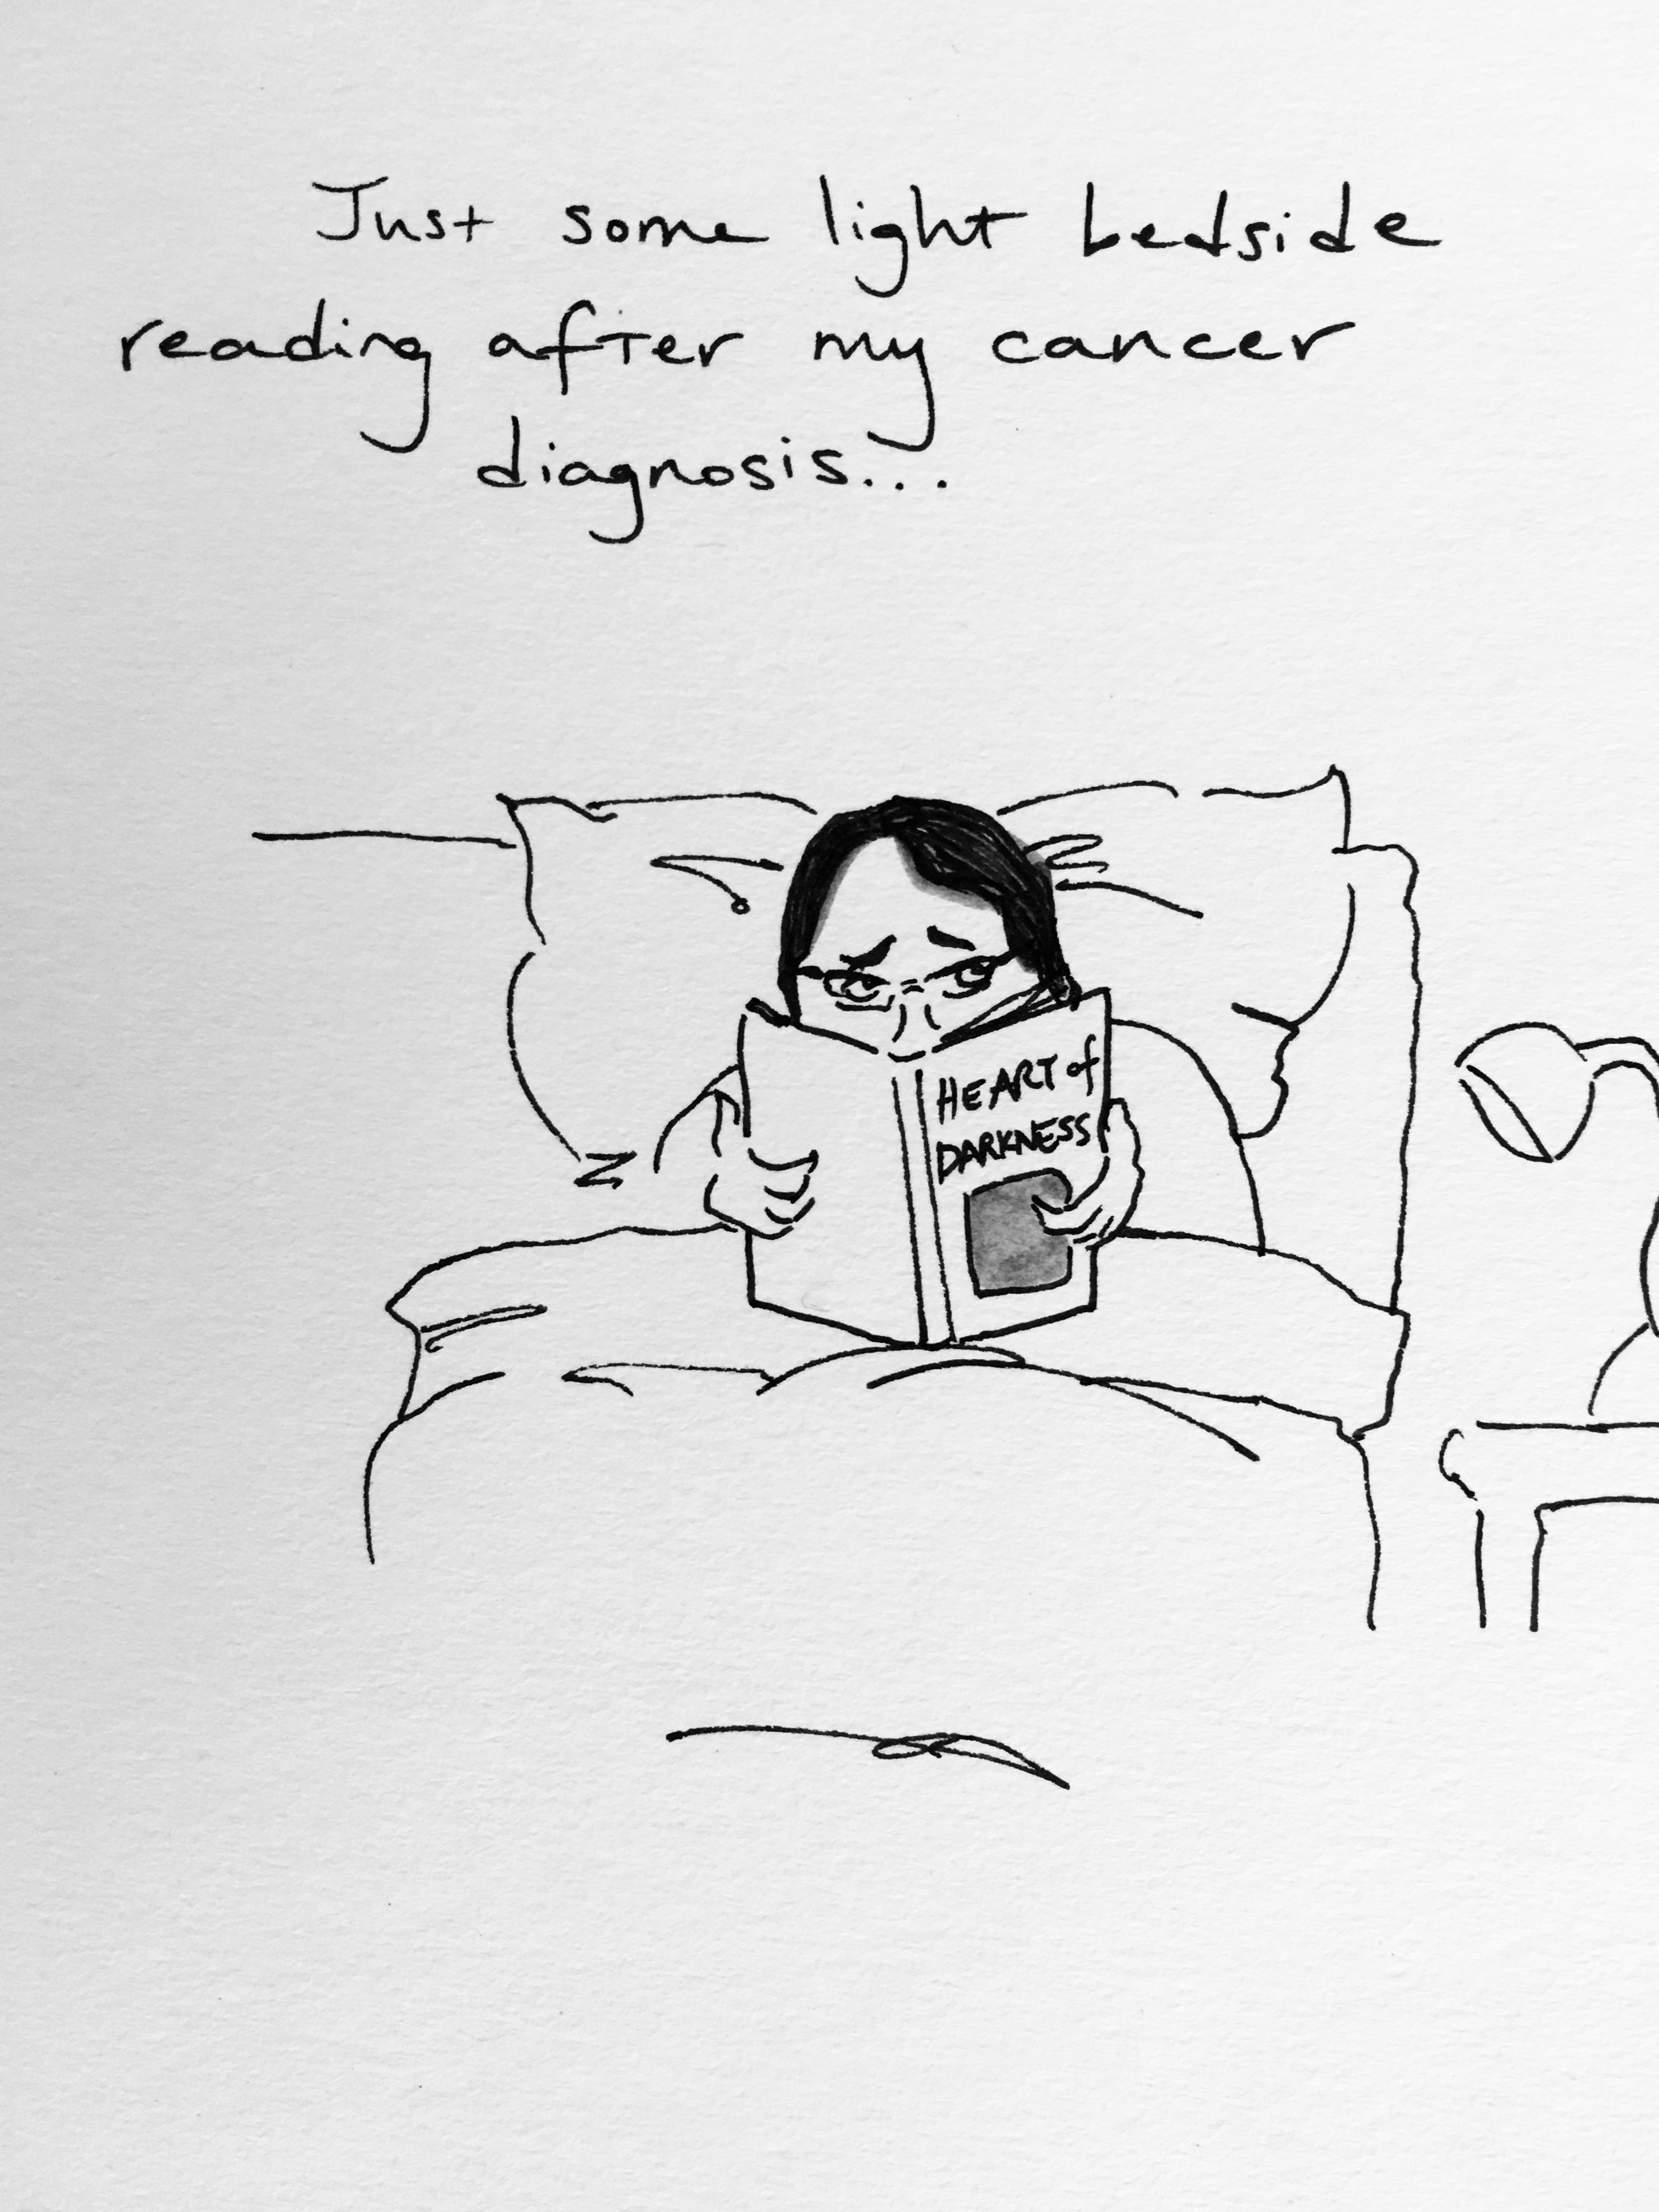 Just some light bedside
reading after my cancer
diagnosis...
HEART of
DARKNESS